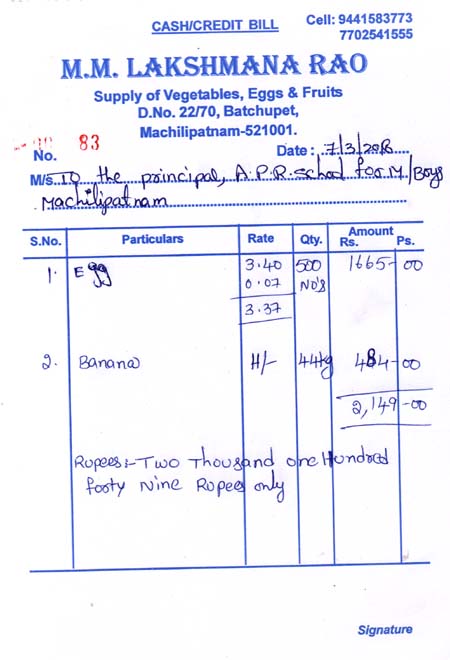 CASH/CREDIT BILL
Cell: 9441583773
7702541555
M.M. LAKSHMANA RAO
Supply of Vegetables, Eggs & Fruits
D.No. 22/70, Batchupet,
Machilipatnam-521001.
No. 83
Date: 7/3/2018
M/s. To the principal, A.P.R. School for M/Boys
Machilipatnam
S.No. Particulars Rate Qty. Amount
Rs. Ps.
1. Egg 3.40 500 1665-00
0.07 NO's
3.37
2. Banana 11/- 44kg 484-00
2,149-00
Rupees:- Two Thousand one Hundred
forty Nine Rupees only
Signature